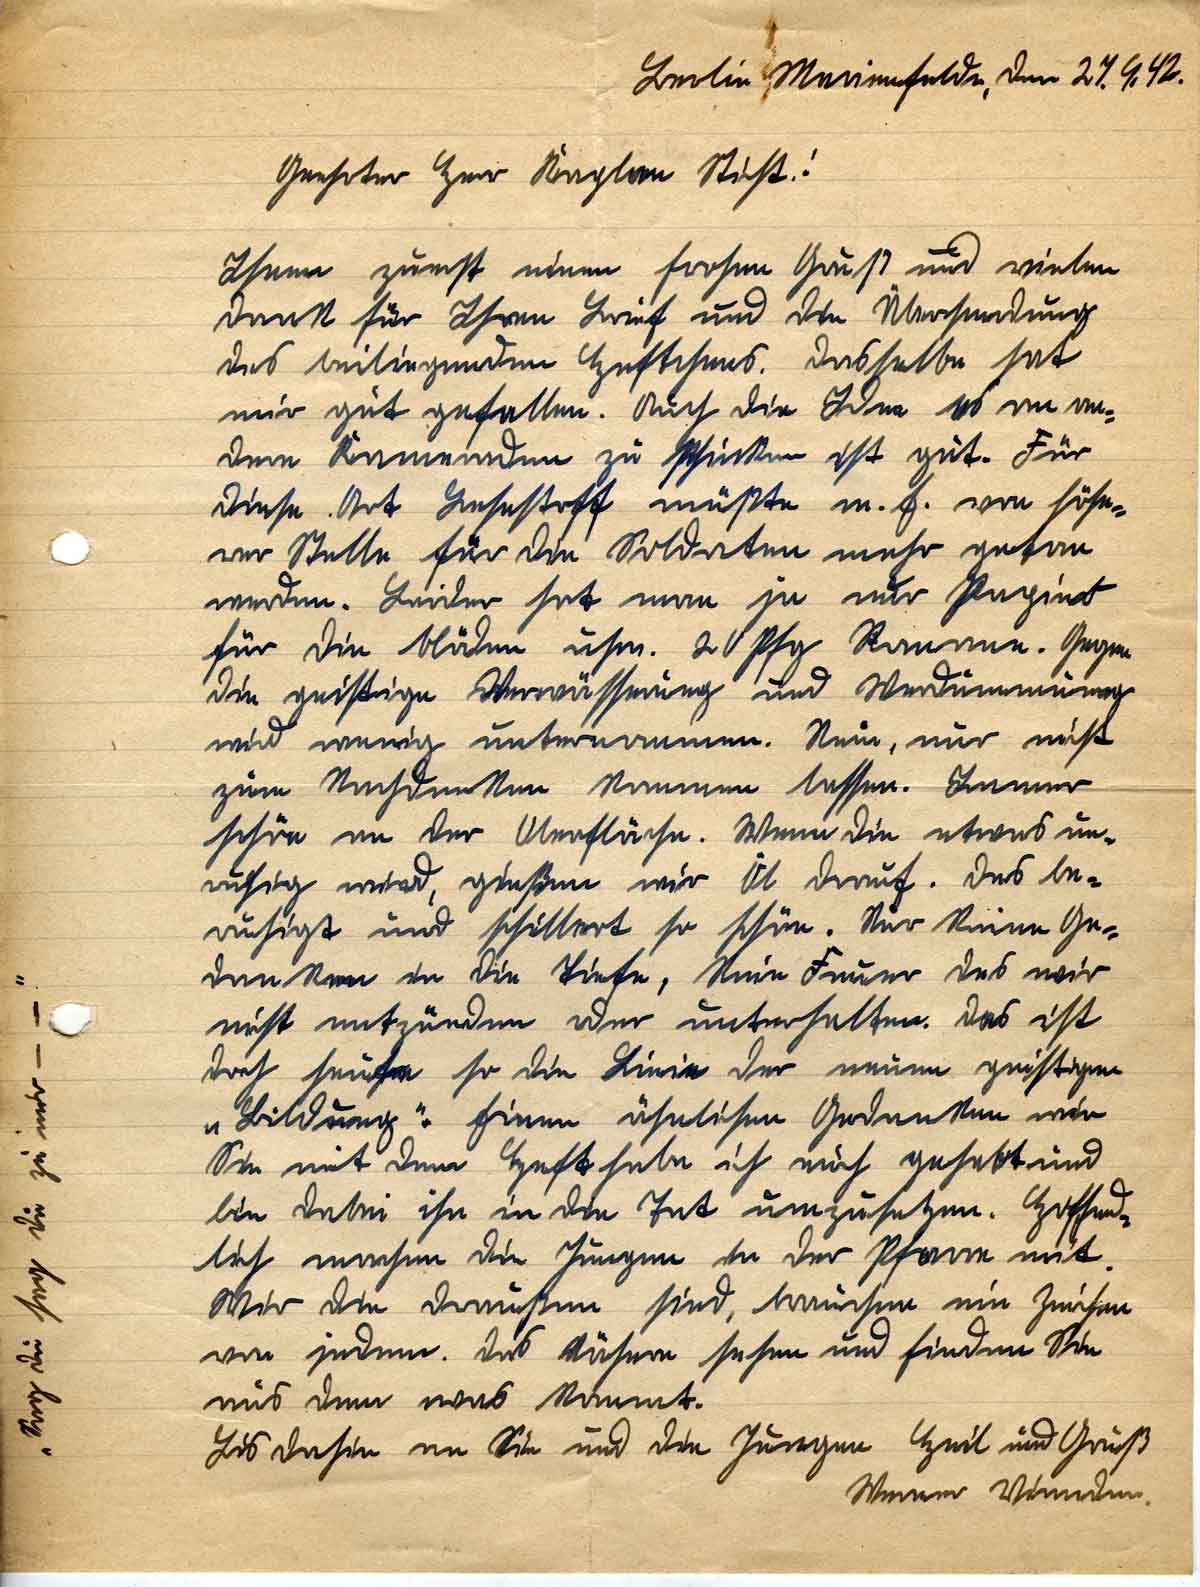 Berlin Marienfelde, den 27.9.42.
Geehrter Herr Kaplan Stift.!
Ihnen zuerst einen frohen Gruß und vielen
Dank für Ihren Brief und die Übersendung
des beiliegenden Heftchens. Dasselbe hat
mir gut gefallen. Auch die Idee es an an-
dere Kameraden zu schicken ist gut. Für
diese Art Lesestoff müßte m. E. von höhe-
rer Stelle für die Soldaten mehr getan
werden. Leider hat man ja nur Papier
für die blöden usw. 20 Pfg Romane. Gegen
die geistige Verwässerung und Verdummung
wird wenig unternommen. Nein, nur nicht
zum Nachdenken kommen lassen. Immer
schön an der Oberfläche. Wenn die etwas un-
ruhig wird, gießen wir Öl darauf. Das be-
ruhigt und schillert so schön. Nur keine Ge-
danken in die Tiefe, kein Feuer das wir
nicht entzünden oder unterhalten. Das ist
doch heute so die Linie der neuen geistigen
„Bildung“. Einen ähnlichen Gedanken wie
Sie mit dem Heft habe ich auch gehabt und
bin dabei ihn in die Tat umzusetzen. Hoffend-
lich machen die Jungen in der Pfarre mit.
Wir die draußen sind, brauchen ein Zeichen
von jedem. Das Nähere sehen und finden Sie
aus dem was kommt.
Bis dahin an Sie und die Jungen Heil und Gruß
Werner
die zu mir — — "